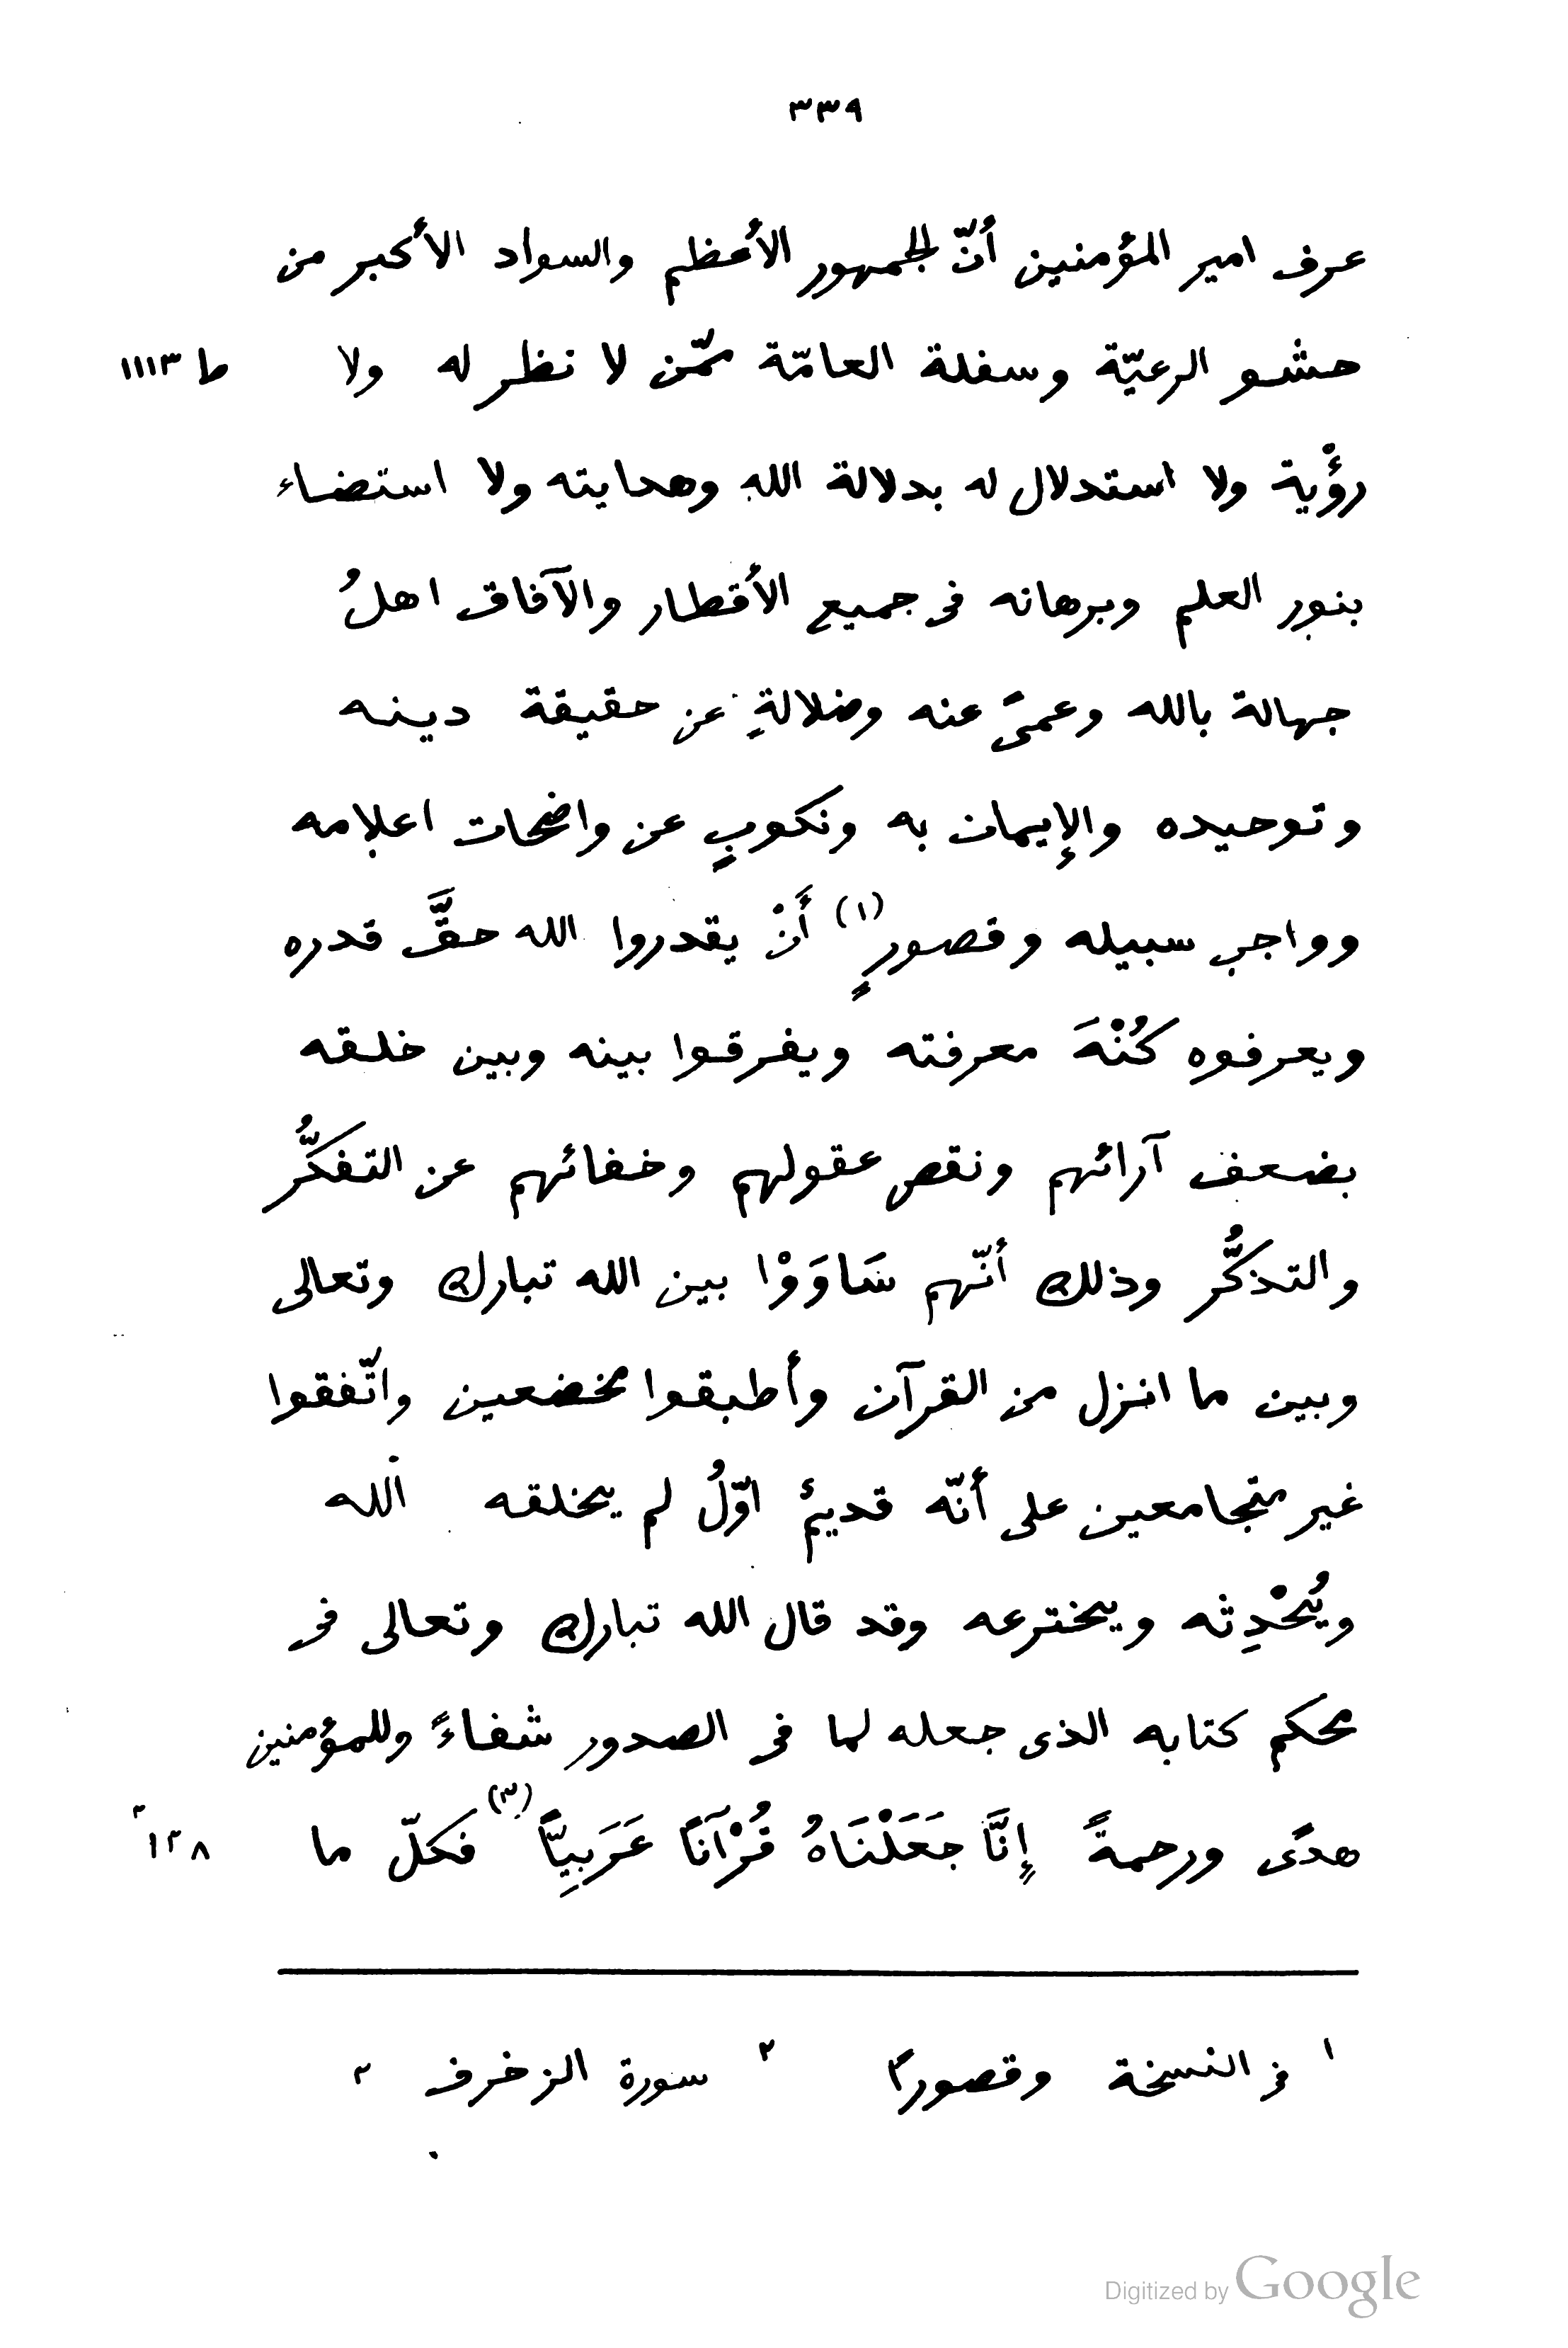 ٣٣٩
عرف امير المؤمنين أنّ الجمهور الأعظم والسواد الأكبر من
حشو الرعيّة وسفلة العامّة ممّن لا نظر له ولا ط ١١١٣
رؤْية ولا استدلال له بدلالة الله وهدايته ولا استضاء
بنور العلم وبرهانه فى جميع الأقطار والآفاق اهلُ
جهالة بالله وعمىً عنه وضلالةٍ عن حقيقة دينه
وتوحيده والإيمان به ونكوبٍ عن واضحات اعلامه
وواجب سبيله وقصورٍ (١) أَنْ يقدروا الله حقَّ قدره
ويعرفوه كُنْهَ معرفته ويفرقوا بينه وبين خلقه
بضعف آرائهم ونقص عقولهم وخفائهم عن التفكُّر
والتذكُّر وذلك أنّهم سَاوَوْا بين الله تبارك وتعالى
وبين ما انزل من القرآن وأطبقوا مخضعين واتّفقوا
غير متجامعين على أنّه قديمٌ اوّلُ لم يخلقه الله
ويُحْدِثه ويخترعه وقد قال الله تبارك وتعالى فى
محكم كتابه الذى جعله لما فى الصدور شفاءً وللمؤمنين
هدًى ورحمةً إِنَّا جَعَلْنَاهُ قُرْآنًا عَرَبِيًّا (٣) فكلّ ما ١٣٨ ٢
١ فى النسخة وقصورًا ٢ سورة الزخرف ٢
Digitized by Google